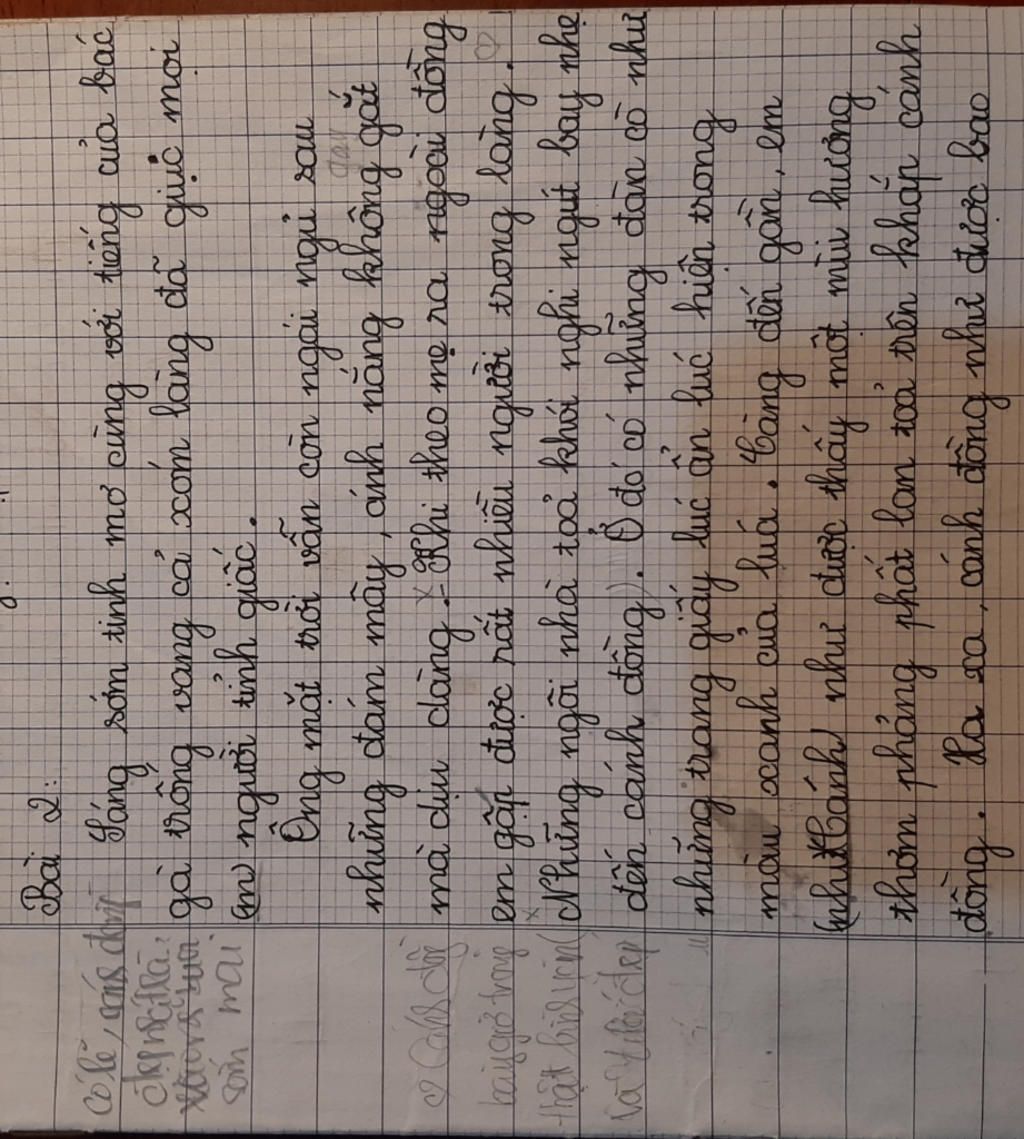 Bài 2:
Sáng sớm tinh mơ cùng với tiếng của bác
gà trống vang cả xóm làng đã giục mọi
(m) người tỉnh giấc.
Ông mặt trời vẫn còn ngái ngủ sau
những đám mây, ánh nắng không gắt
mà dịu dàng. Khi theo mẹ ra ngoài đồng
em gặp được rất nhiều người trong làng.
Những ngôi nhà toả khói nghi ngút bay nhẹ
đến cánh đồng. Ở đó có những đàn cò như
những trang giấy lúc ẩn lúc hiện trong
màu xanh của luá. Càng đến gần, em
như được thấy một mùi hương
thơm phảng phất lan toả trên khắp cánh
đồng. Xa xa, cánh đồng như được bao
Có lẽ, cánh đồng
đẹp nhất là
sớm mai
♡ Cánh đồng
bây giờ trông
thật bình yên
và tươi đẹp